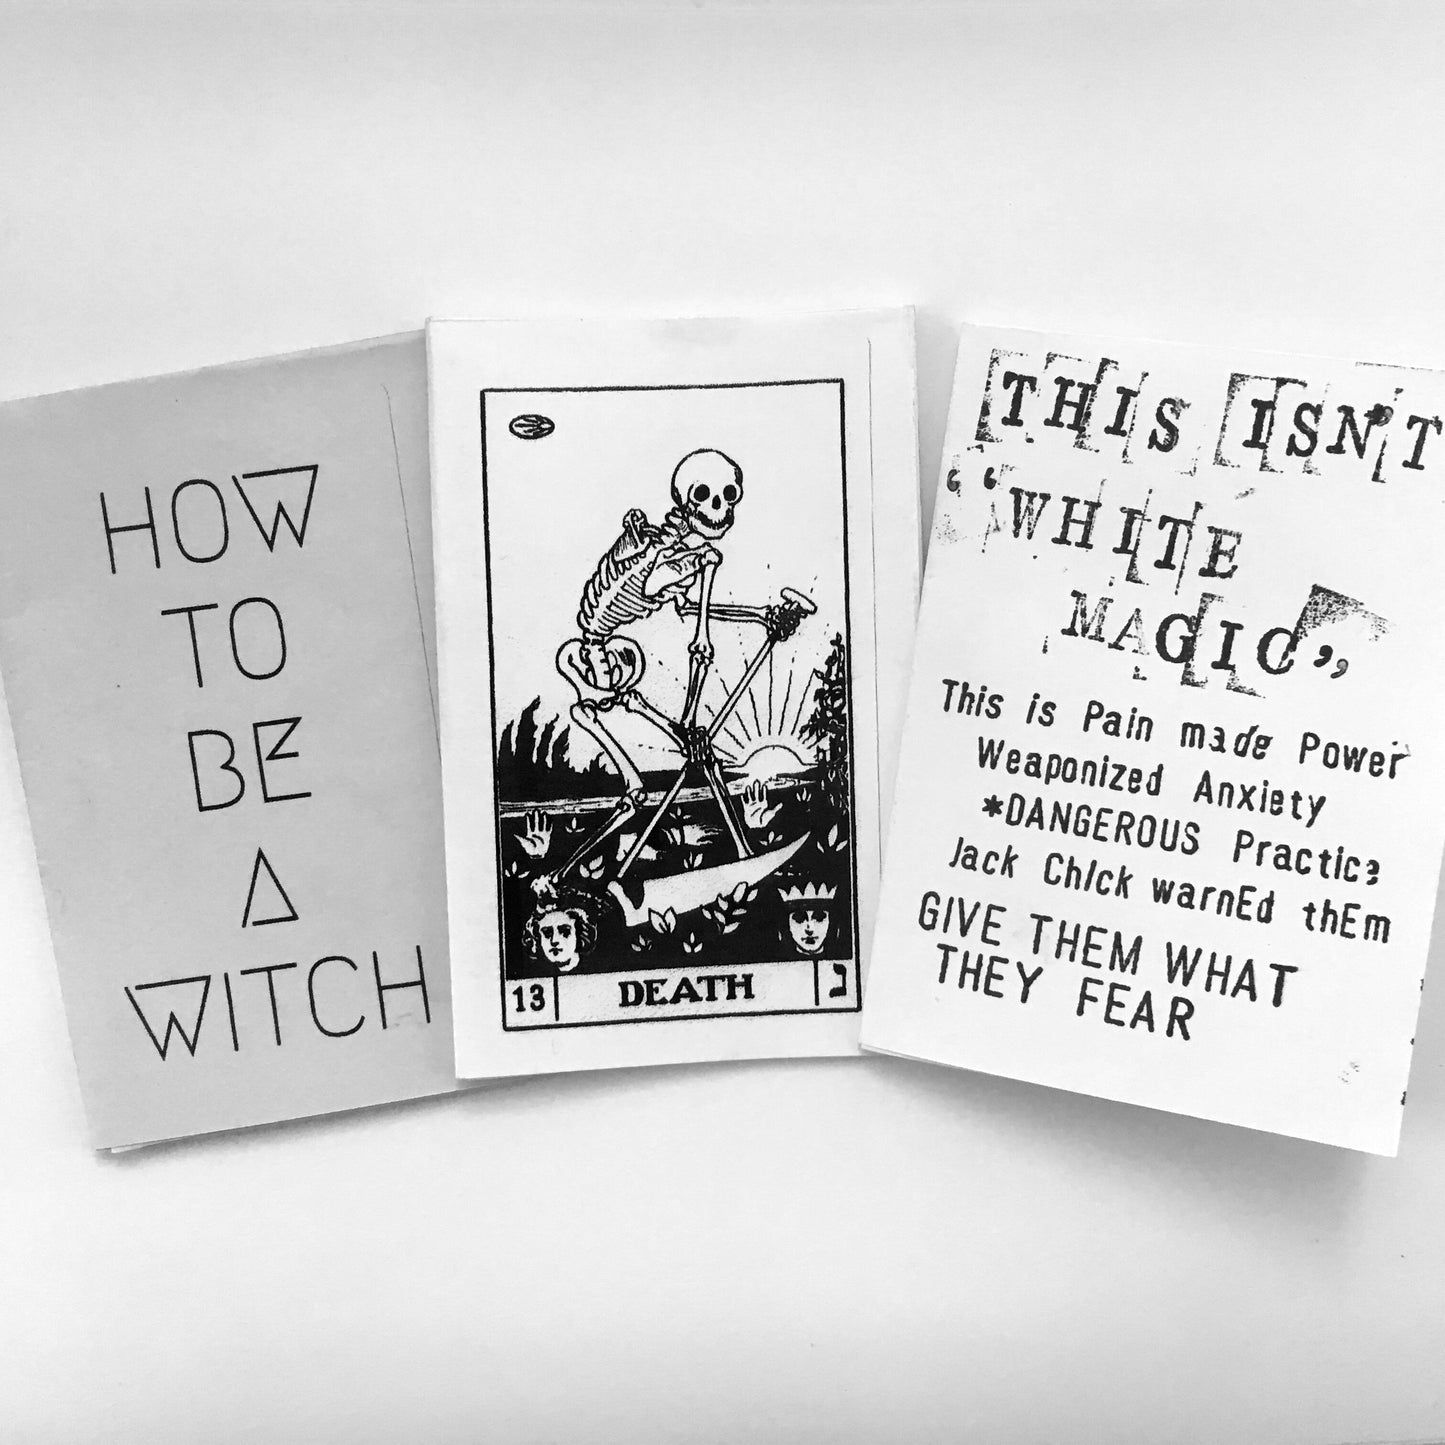 HOW
TO
BE
A
WITCH
13 DEATH נ
THIS ISN'T
“WHITE
MAGIC”
This is Pain made Power
Weaponized Anxiety
*DANGEROUS Practice
Jack ChIck warnEd thEm
GIVE THEM WHAT
THEY FEAR